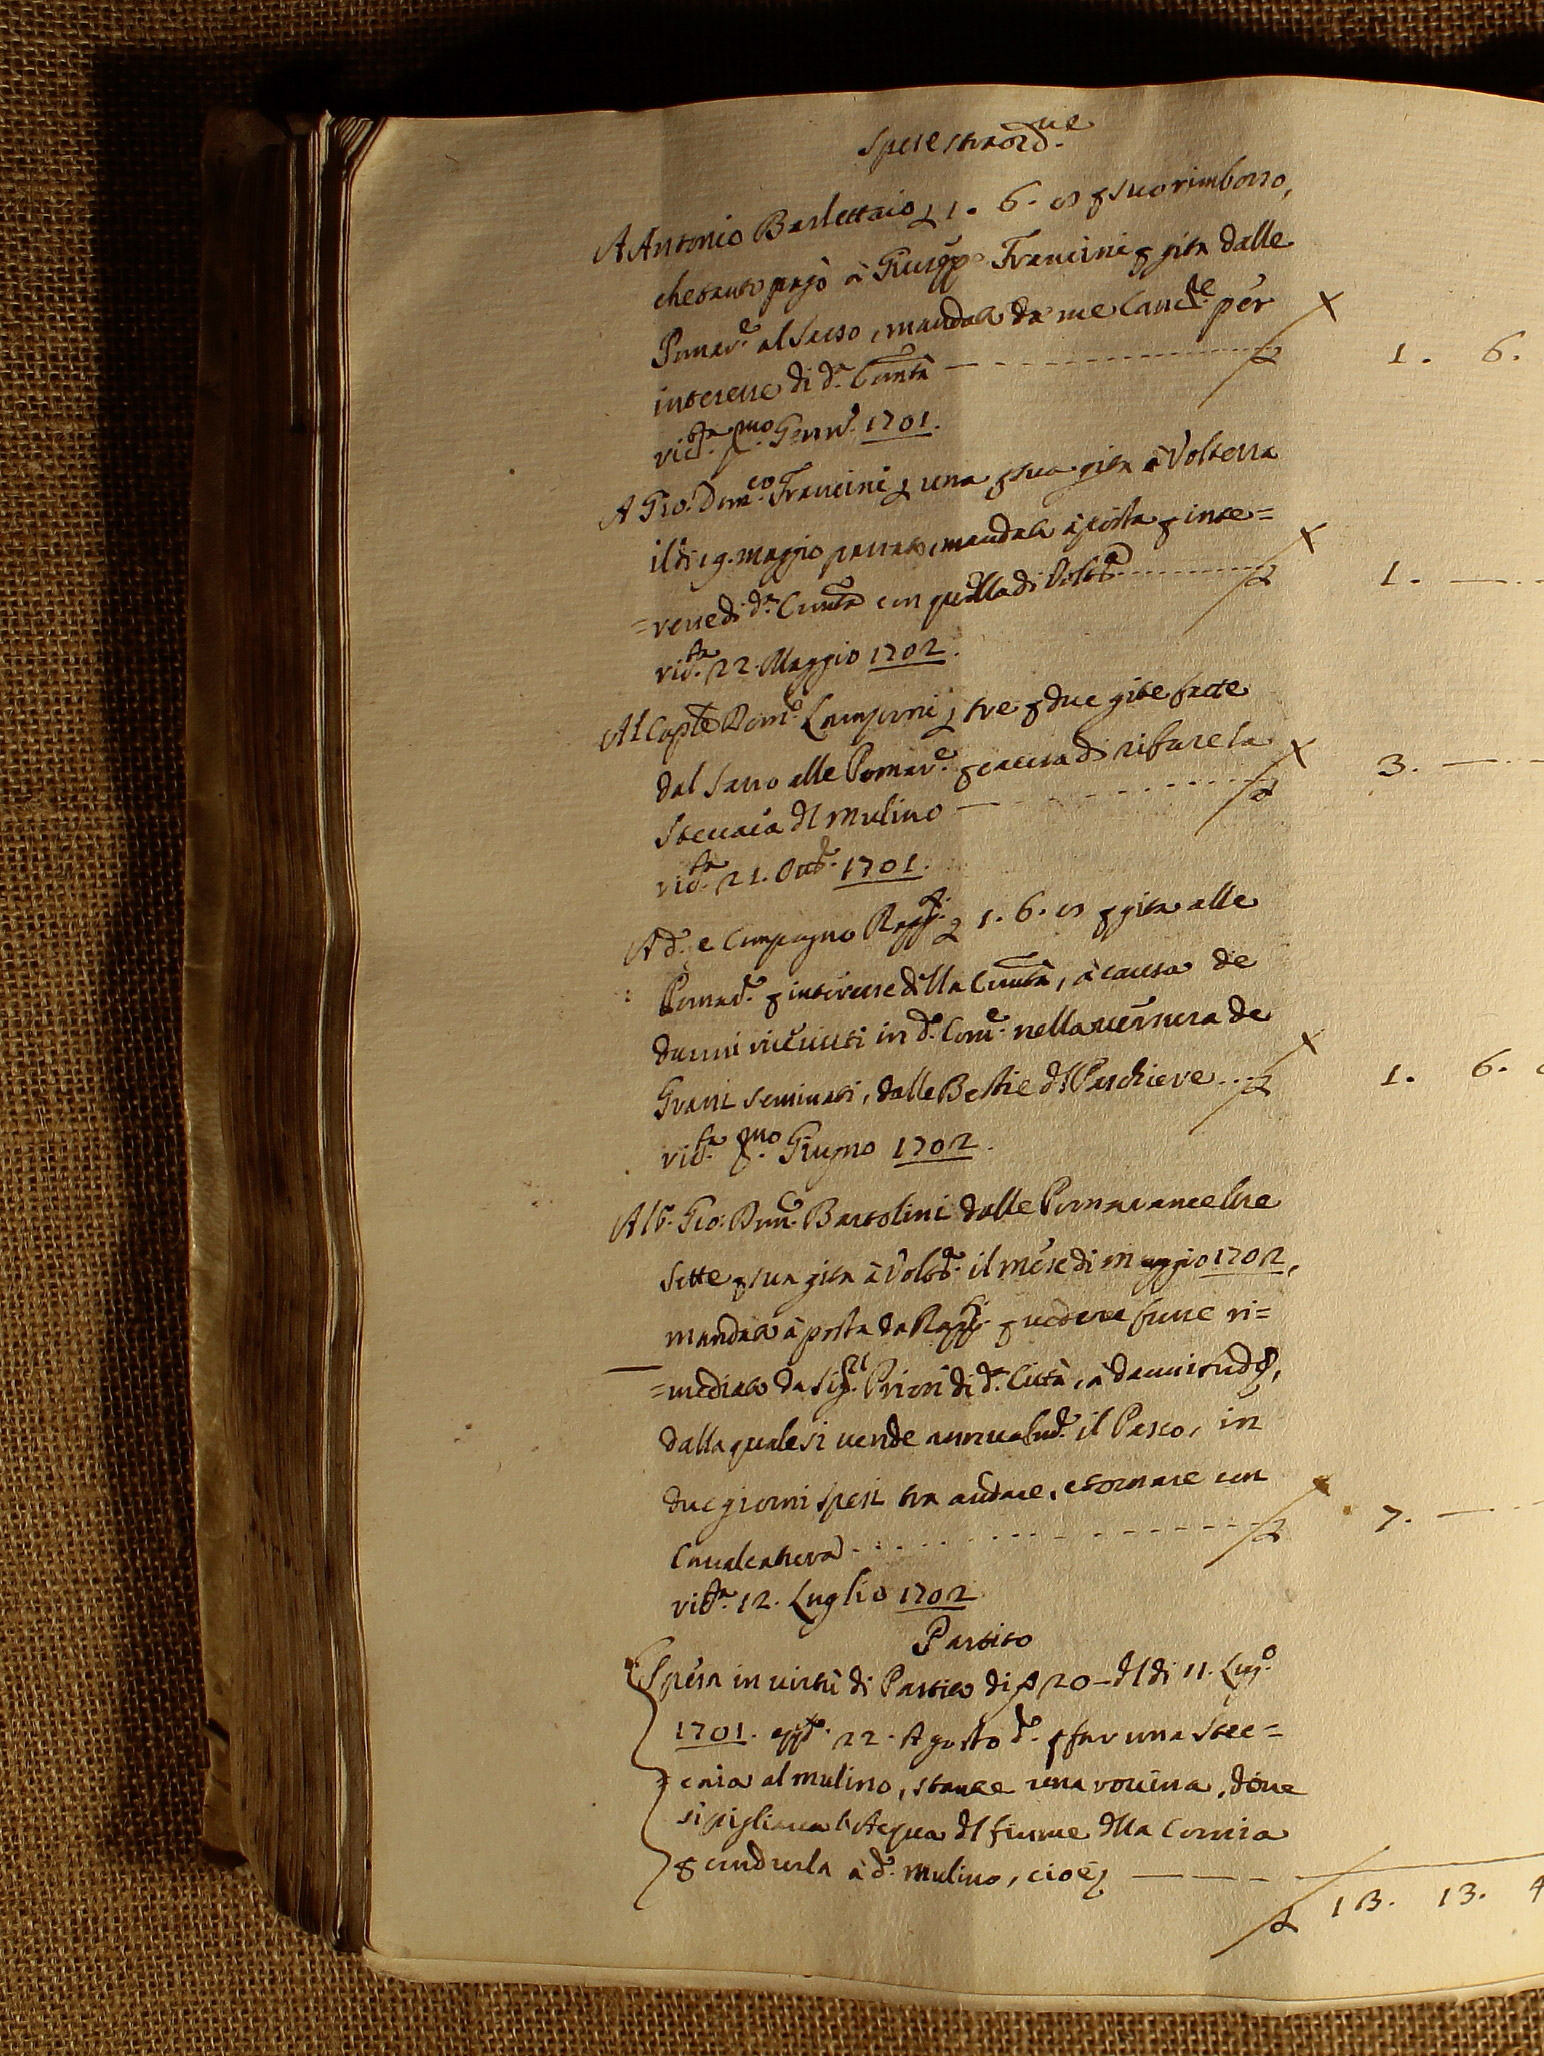 Spese straord.rie
A Antonio Barlettaio £ 1. 6. 8 p suo rimborso,
che tanto pagò à Giusepp.e Francini p gita dalle
Pomar.e al Sasso, mandato da me Canc.re per
interesse di d.a Com.tà £ 1. 6.
vid.ta p.mo Genn.o 1701.
A Gio: Dom.co Francini £ una p sua gita à Volterra
il dì 19. maggio passato, mandato à posta p inte=
=resse di d.a Com.tà con quella di Volt.a £ 1.
vid.ta 22. Maggio 1702.
Al Cap.le Dom.co Lamponi £ tre p due gite fatte
dal Sasso alle Pomar.e p causa di rifare la
Steccaia dl mulino £ 3.
vid.ta 21. Ott.e 1701.
A d.o e Compagno Rapp.ti £ 1. 6. 8 p gita alle
Pomar.e p interesse della Com.tà, à causa de
danni ricevuti in d.o Com.e nella
Grani seminati, dalle Bestie dl Paschiere £ 1. 6.
vid.ta p.mo Giugno 1702.
Al S.r Gio: Dom.co Bartolini dalle Pomarance lire
sette p sua gita à Volt.a il mese di maggio 1702,
mandato à posta da Rapp.ti p vedere fusse ri=
=mediato da Sig.ri Priori di d.a Città, à danni sud.i,
dalla quale si vende annualm.te il Pasco, in
due giorni spesi tra andare, e tornare con
Cavalcatura £ 7.
vid.ta 12. Luglio 1702
Partito
Spesa in virtù di Partito di 20 - dl dì 11. Lug.o
1701. app.to 22. Agosto d.o p far una Stec=
=caia al mulino, stante una rovina, dove
si pigliava l'Acqua dl fiume dlla Cornia
p condurla à d.o mulino, cioè £ 13. 13. 4